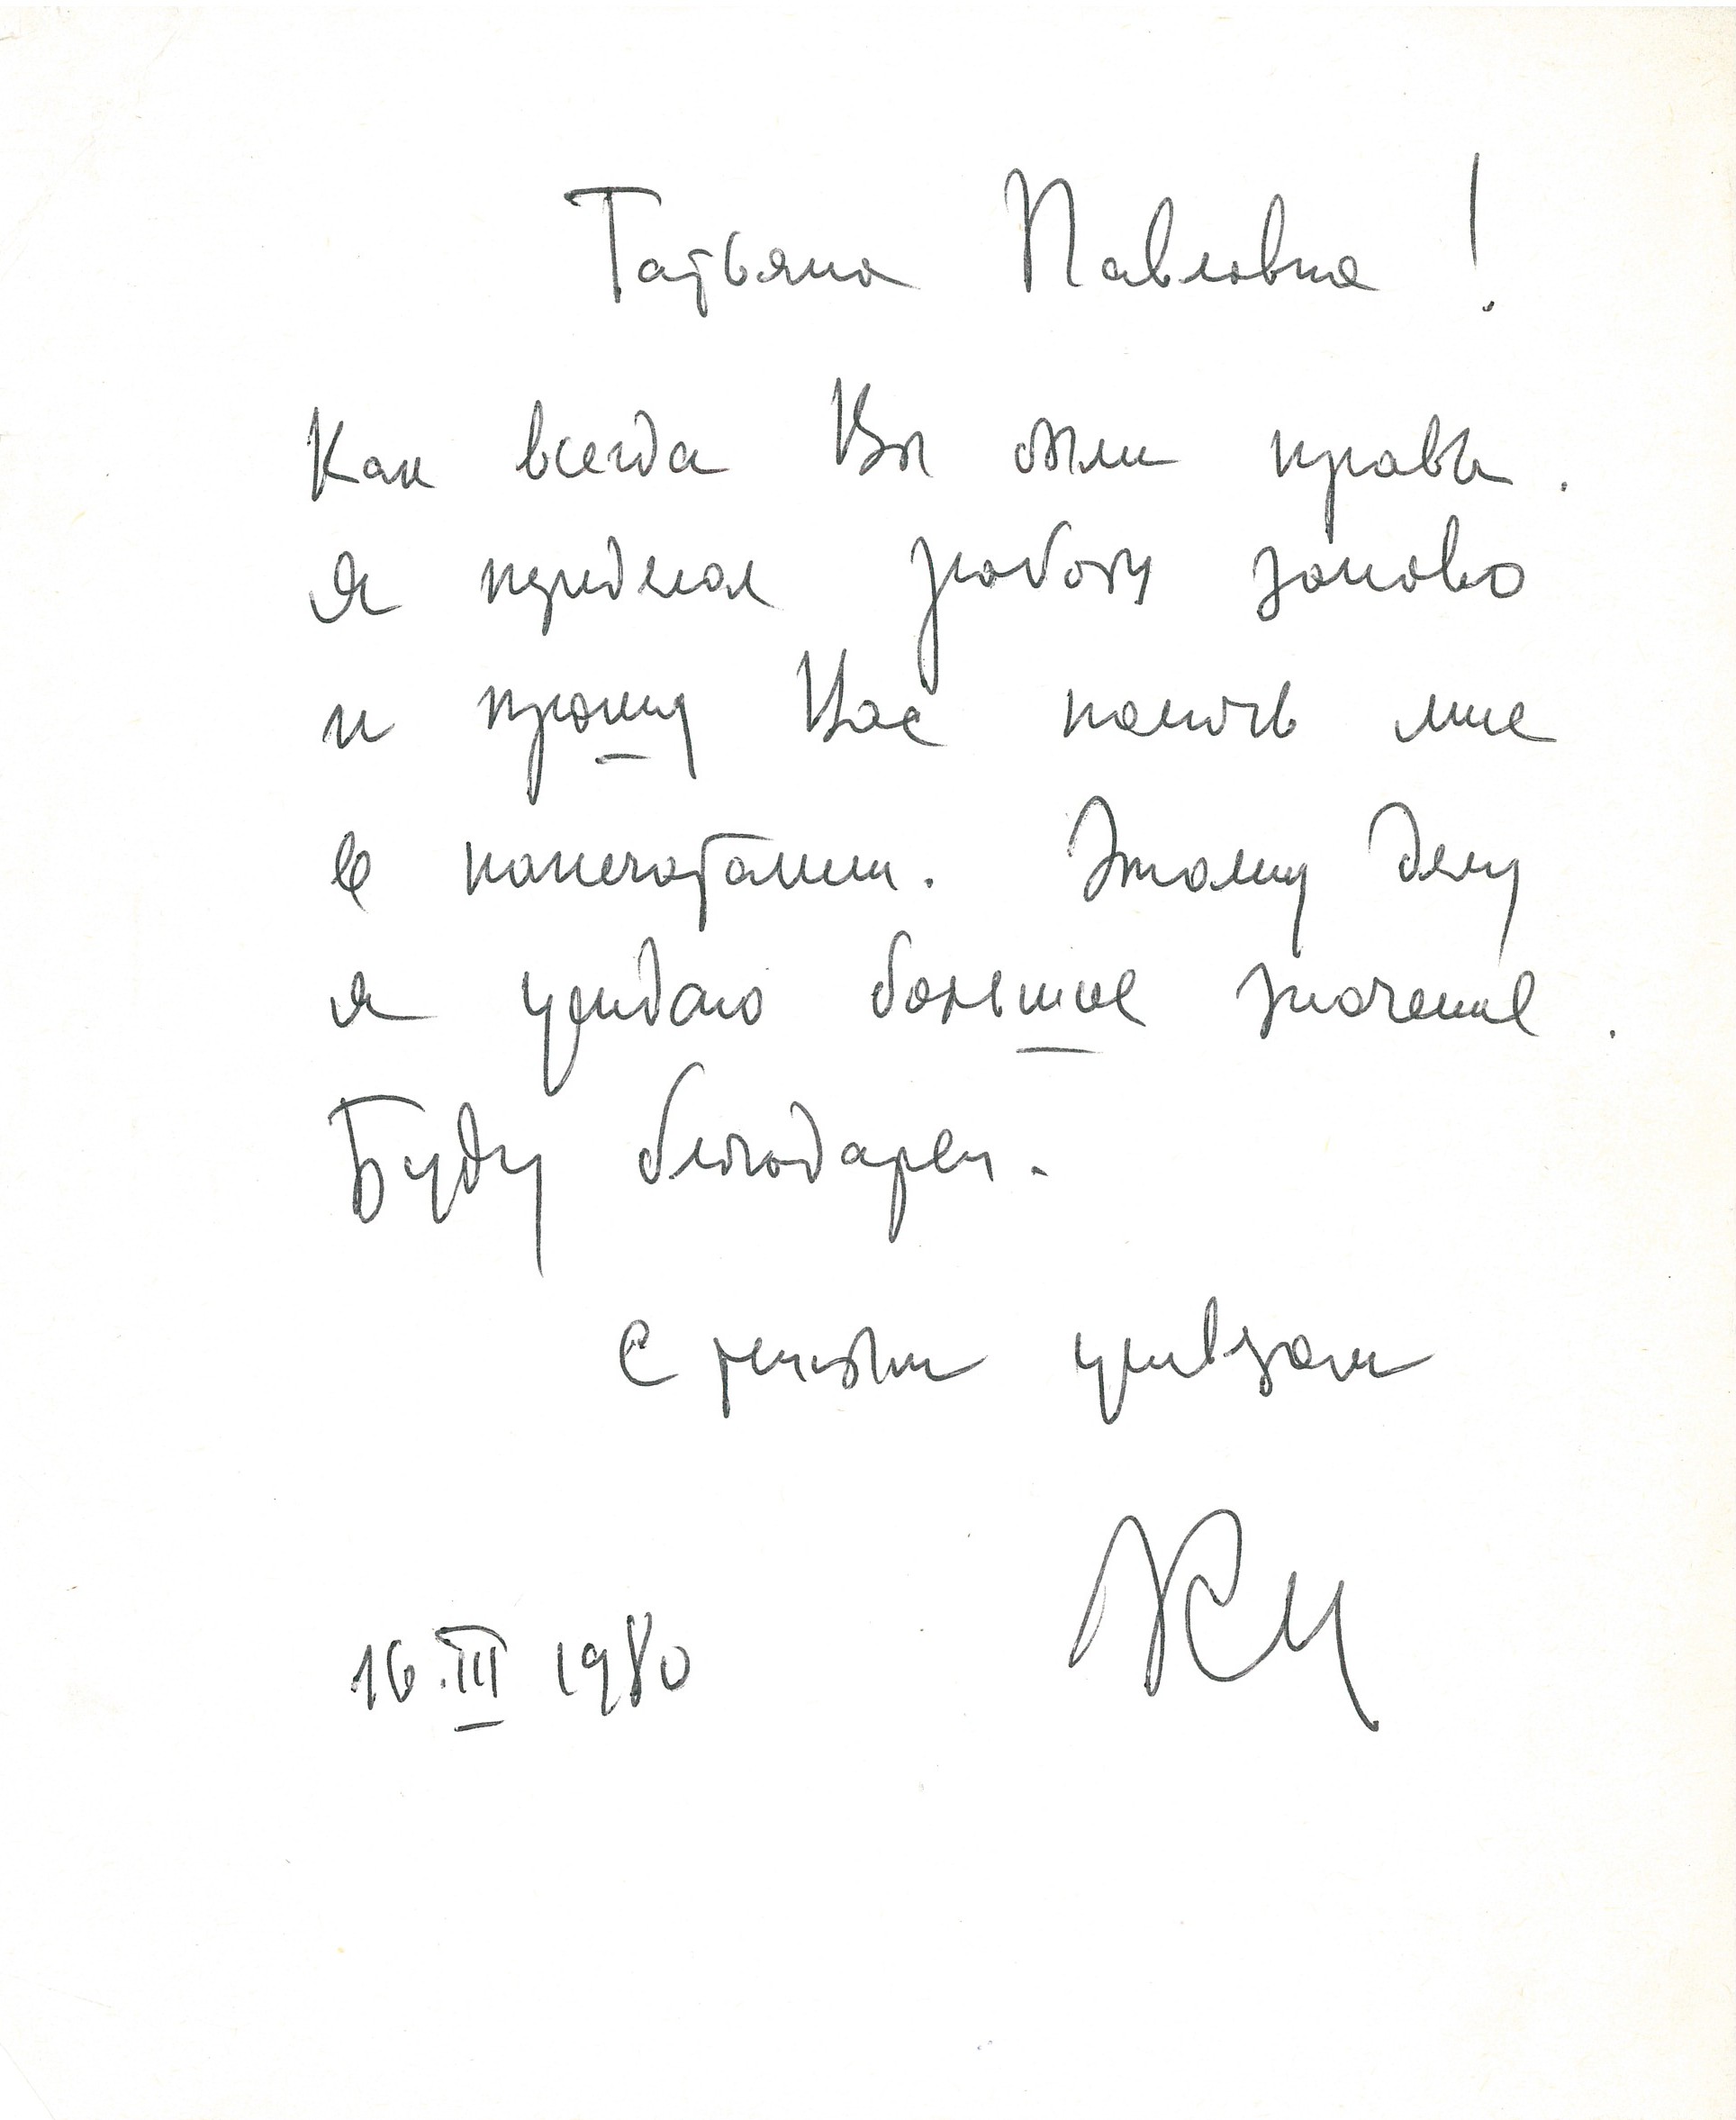 Татьяна Павловна!
Как всегда Вы были правы.
Я переделал работу заново
и прошу Вас помочь мне
в напечатании. Этому делу
я придаю большое значение.
Буду благодарен.
С приветом
16.III 1980